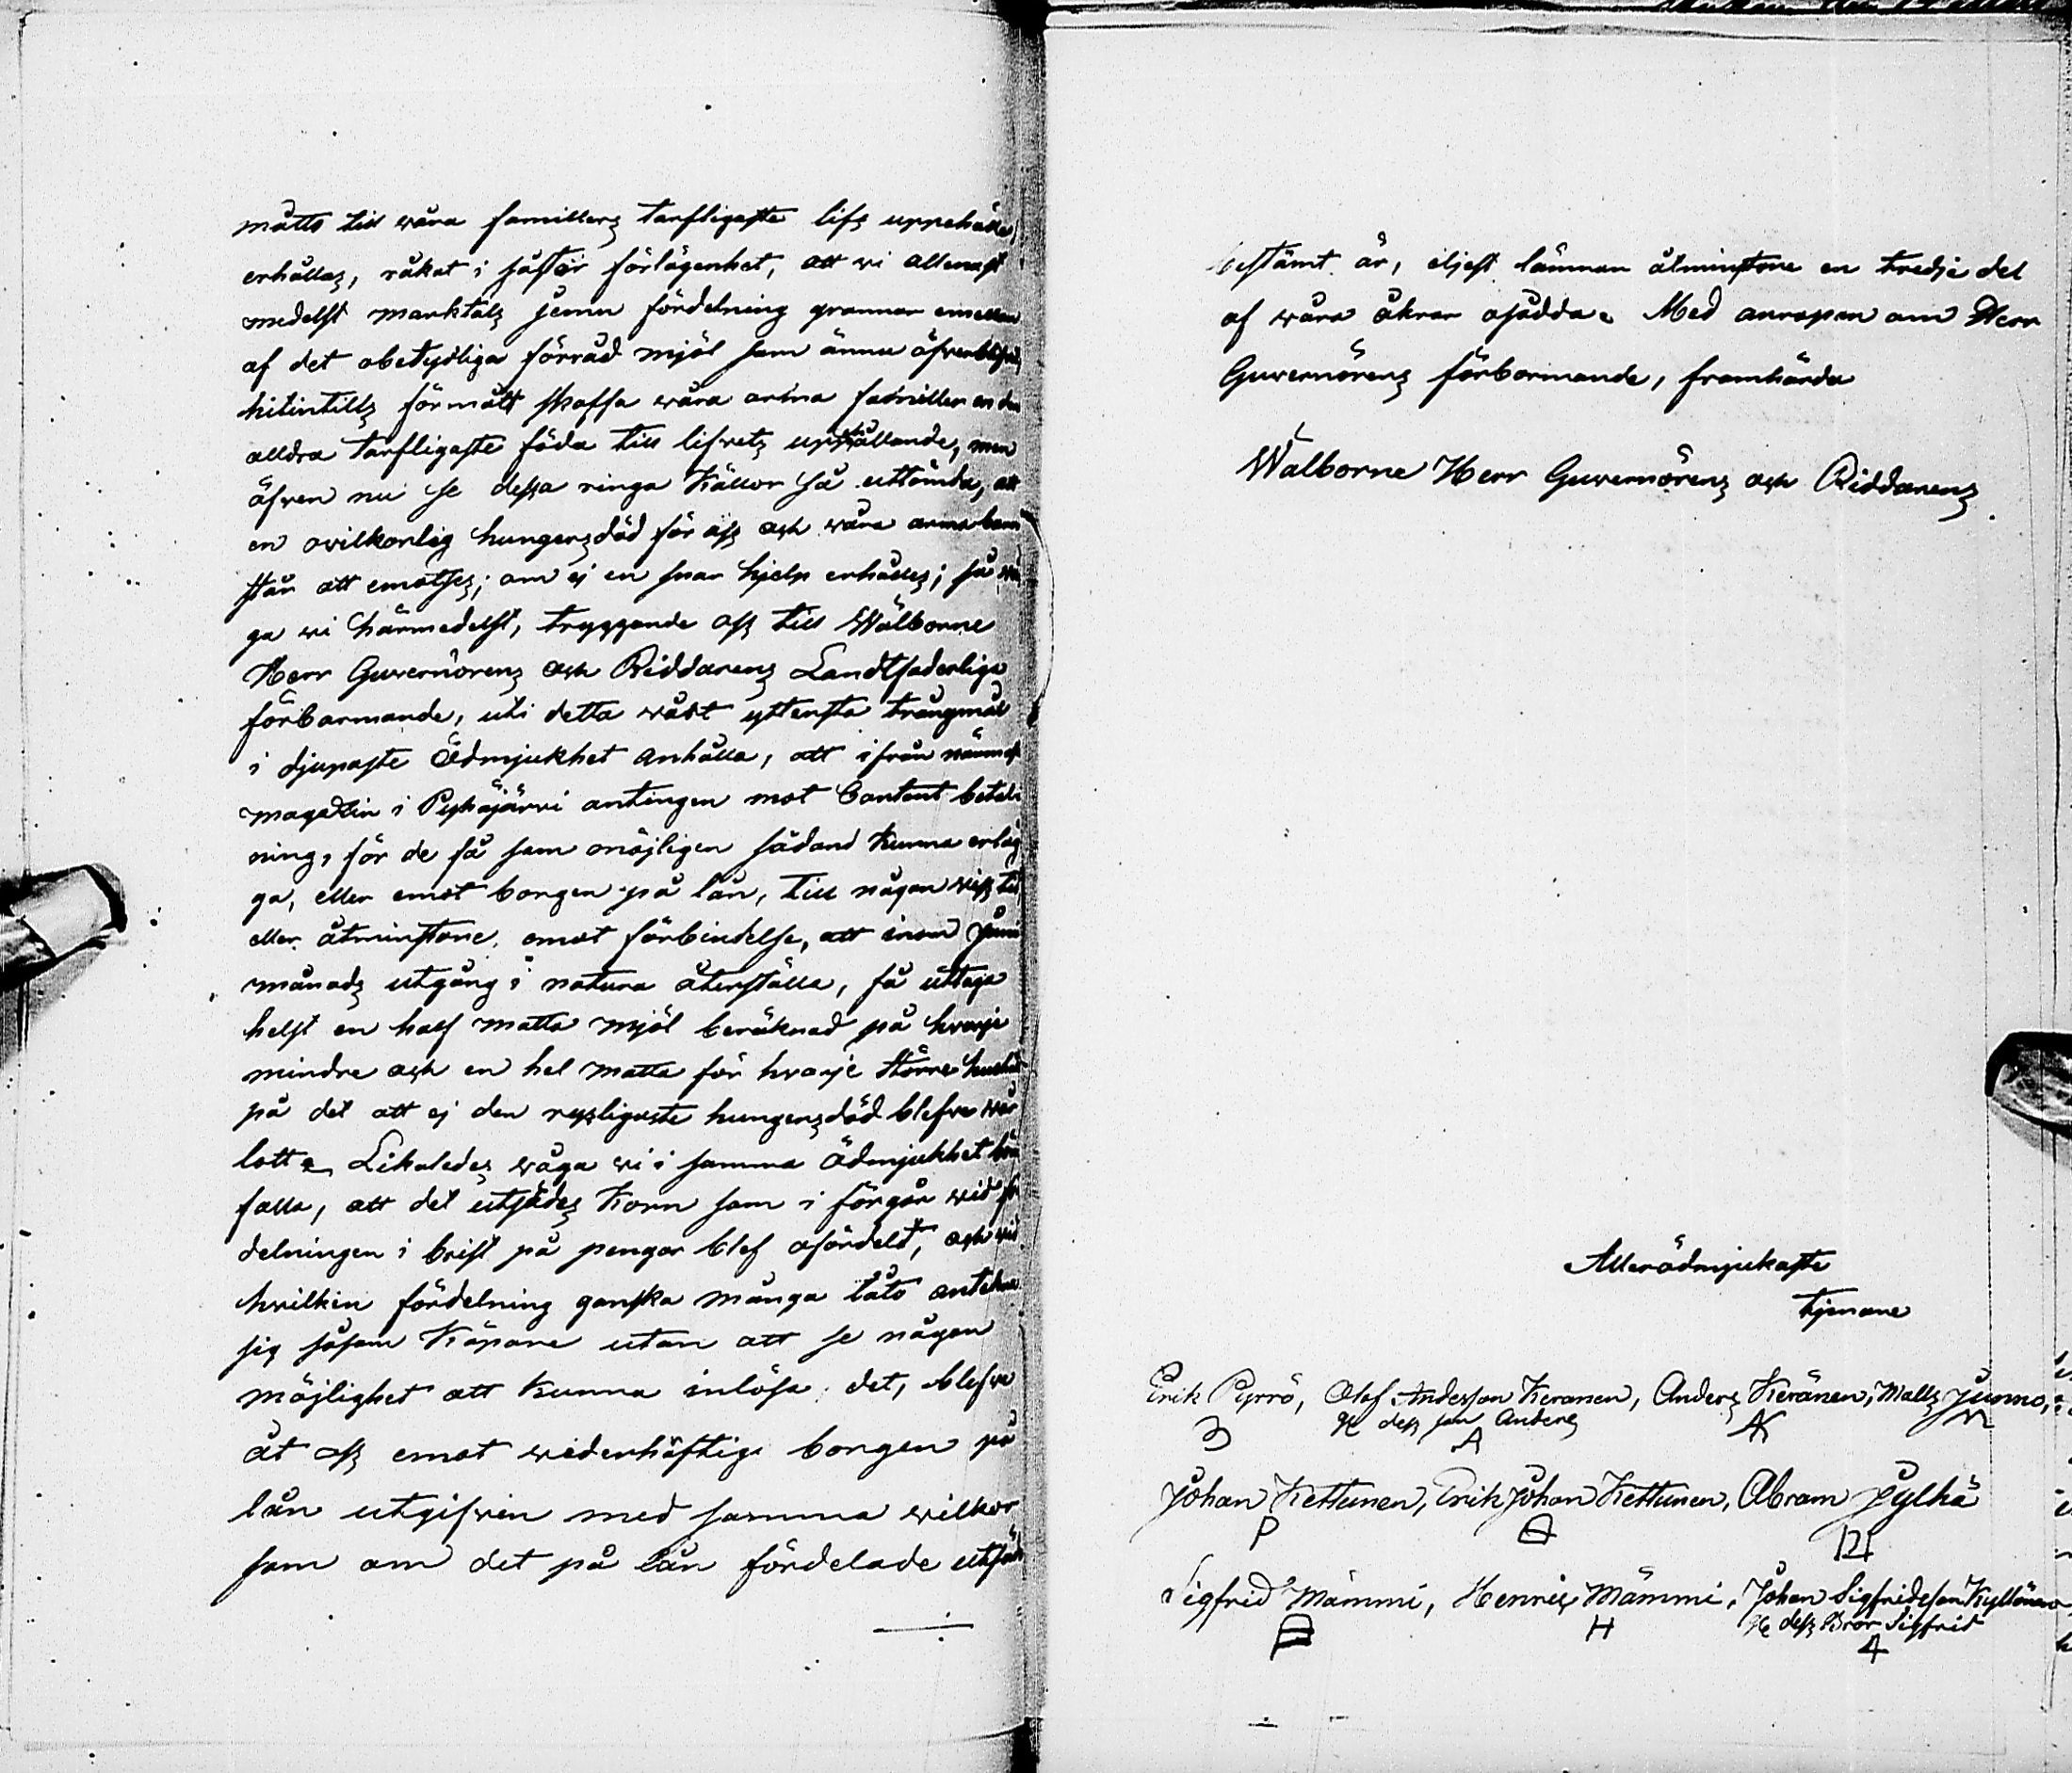 måtto till våra familiers tarfligaste lifs uppehälle
erhållas, råkat i sådan förlägenhet, att vi allenast
medelst manktals jemn fördelning grannar emellan
af det obetydliga förråd mjöl som ännu öfverblifvit,
hitintills förmått skaffa våra arma familler en den
alldra tarfligaste föda till lifvets uppehållande, men
äfven nu se dessa ringa källor så uttömda, att
en ovilkorlig hungersdöd för oss och våra arma barn
står att emotses; om ej en snar hjelp erhålles; så vå
ga vi härmedelst, tryggande oss till Wälborne
Herr Guvernörens och Riddarens Landtfaderliga
förbarmande, uti detta vårt yttersta trångmål
i djupaste Ödmjukhet anhålla, att ifrån närmaste
magazin i Pyhäjärvi antingen mot Contant betal
ning, för de få som möjligen sådand kunna erläg
ga, eller emot borgen på lån, till någon viss tid,
eller åtminstone emot förbindelse, att inom Juni
månads utgång i natura återställa, få uttaga
helst en half matta mjöl beräknad på hvarje
mindre och en hel matta för hvarje större hushåll
på det att ej den rysligaste hungersdöd blefve vår
lott. Likaledes våga vi i samma ödmjukhet bön
falla, att det utsädes korn som i förgår vid för
delningen i brist på pengar blef ofördelt, och vid
hvilken fördelning ganska många låto anteckna
sig såsom köpare utan att se någon
möjlighet att kunna inlösa det, blefve
åt oss emot vederhäftig borgen på
lån utgifven med samma vilkor
som om det på lån fördelade utsäde
bestämt är, eljest lämnas åtminstone en tredje del
af våra åkrar osådda. Med anropan om Herr
Guvernörens förbarmande, framhärda
Wälborne Herr Guvernörens och Riddarens
Alleródmjukaste
tjenare
Erik Pyrrö, Olof Andersson Keränen, Anders Keränen, Matts Junno,
gm dess son Anders
Johan Kettunen, Erik Johan Kettunen, Abram Pylhä
Sigfrid Mämmi, Henric Mämmi, Johan Sigfridsson Kyllönen
gm dess Bror Sigfrid